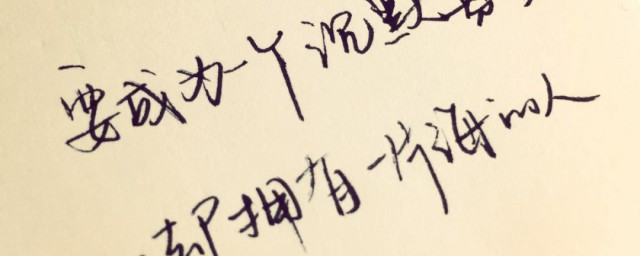 要成为一个沉默
却拥有一片海的人